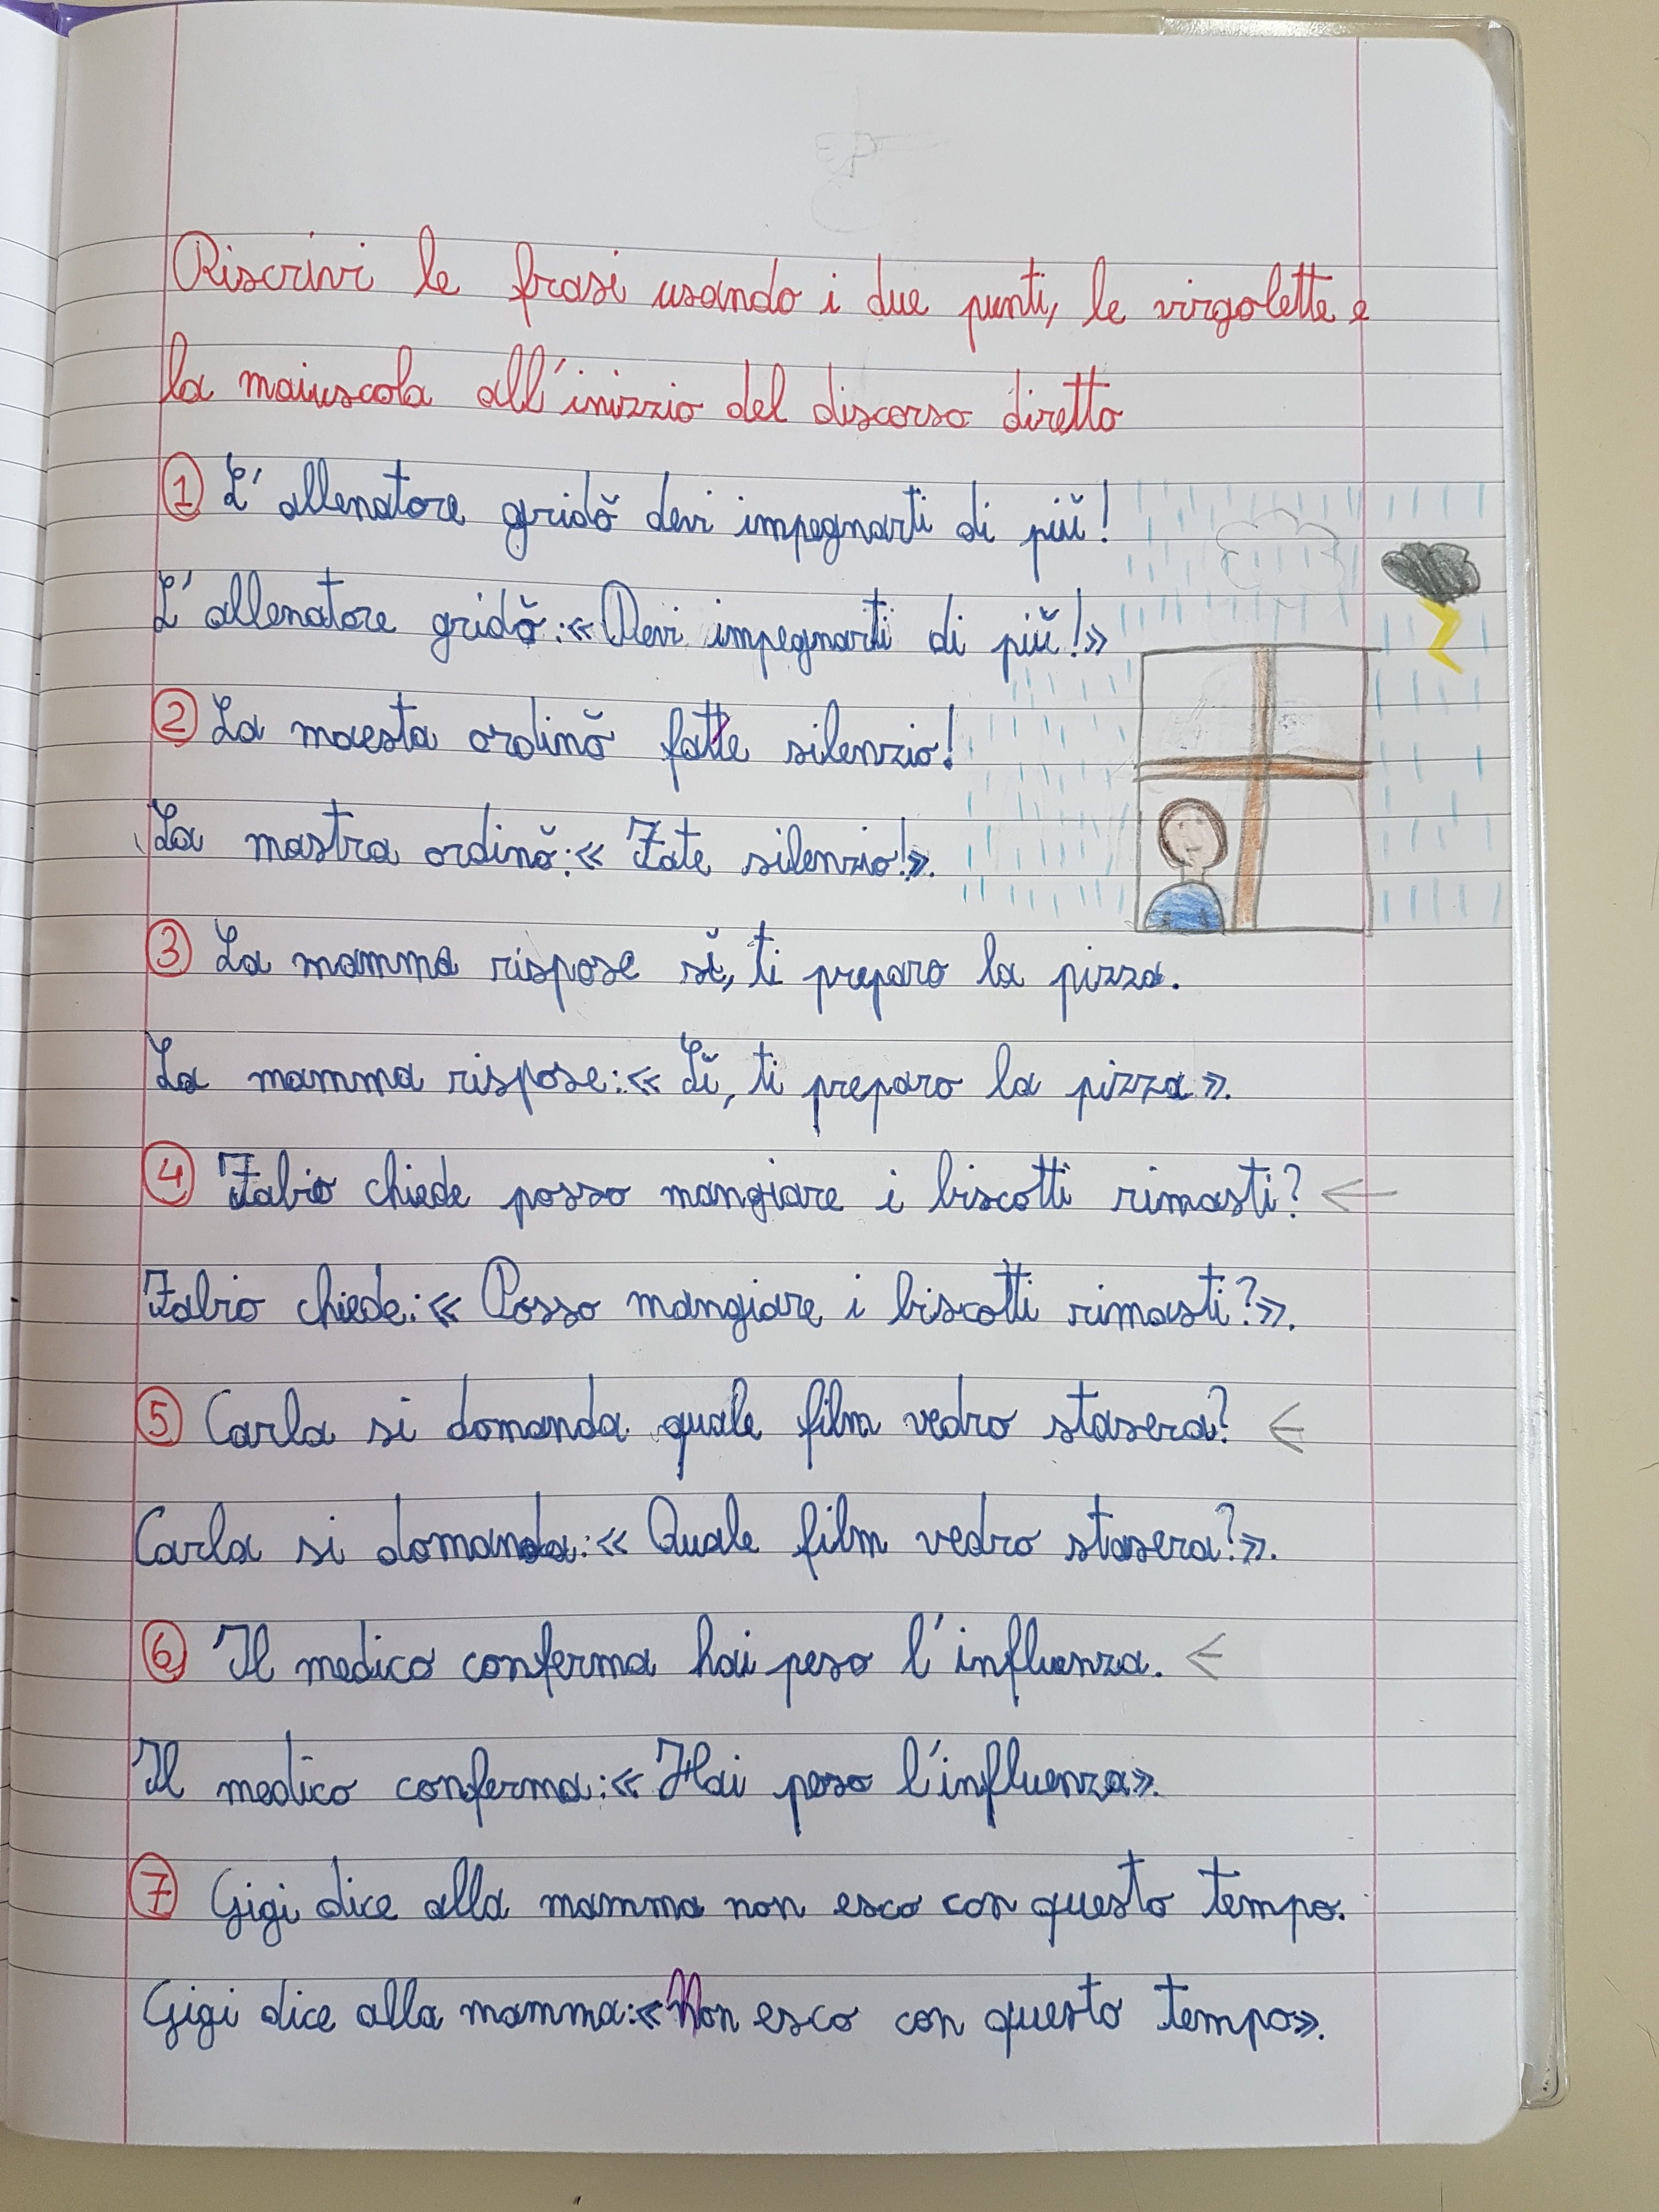 Riscrivi le frasi usando i due punti, le virgolette e
la maiuscola all'inizzio del discorso diretto
1 L'allenatore gridò devi impegnarti di più!
L'allenatore gridò:«Devi impegnarti di più!»
2 La maesta ordinò fatte silenzio!
La mastra ordinò:« Fate silenzio!».
3 La mamma rispose sì, ti preparo la pizza.
La mamma rispose:« Sì, ti preparo la pizza».
4 Fabio chiede posso mangiare i biscotti rimasti? ←
Fabio chiede:« Posso mangiare i biscotti rimasti?».
5 Carla si domanda quale film vedro stasera? ←
Carla si domanda:« Quale film vedro stasera?».
6 Il medico conferma hai peso l'influenza. ←
Il medico conferma:« Hai peso l'influenza».
7 Gigi dice alla mamma non esco con questo tempo.
Gigi dice alla mamma:«Non esco con questo tempo».